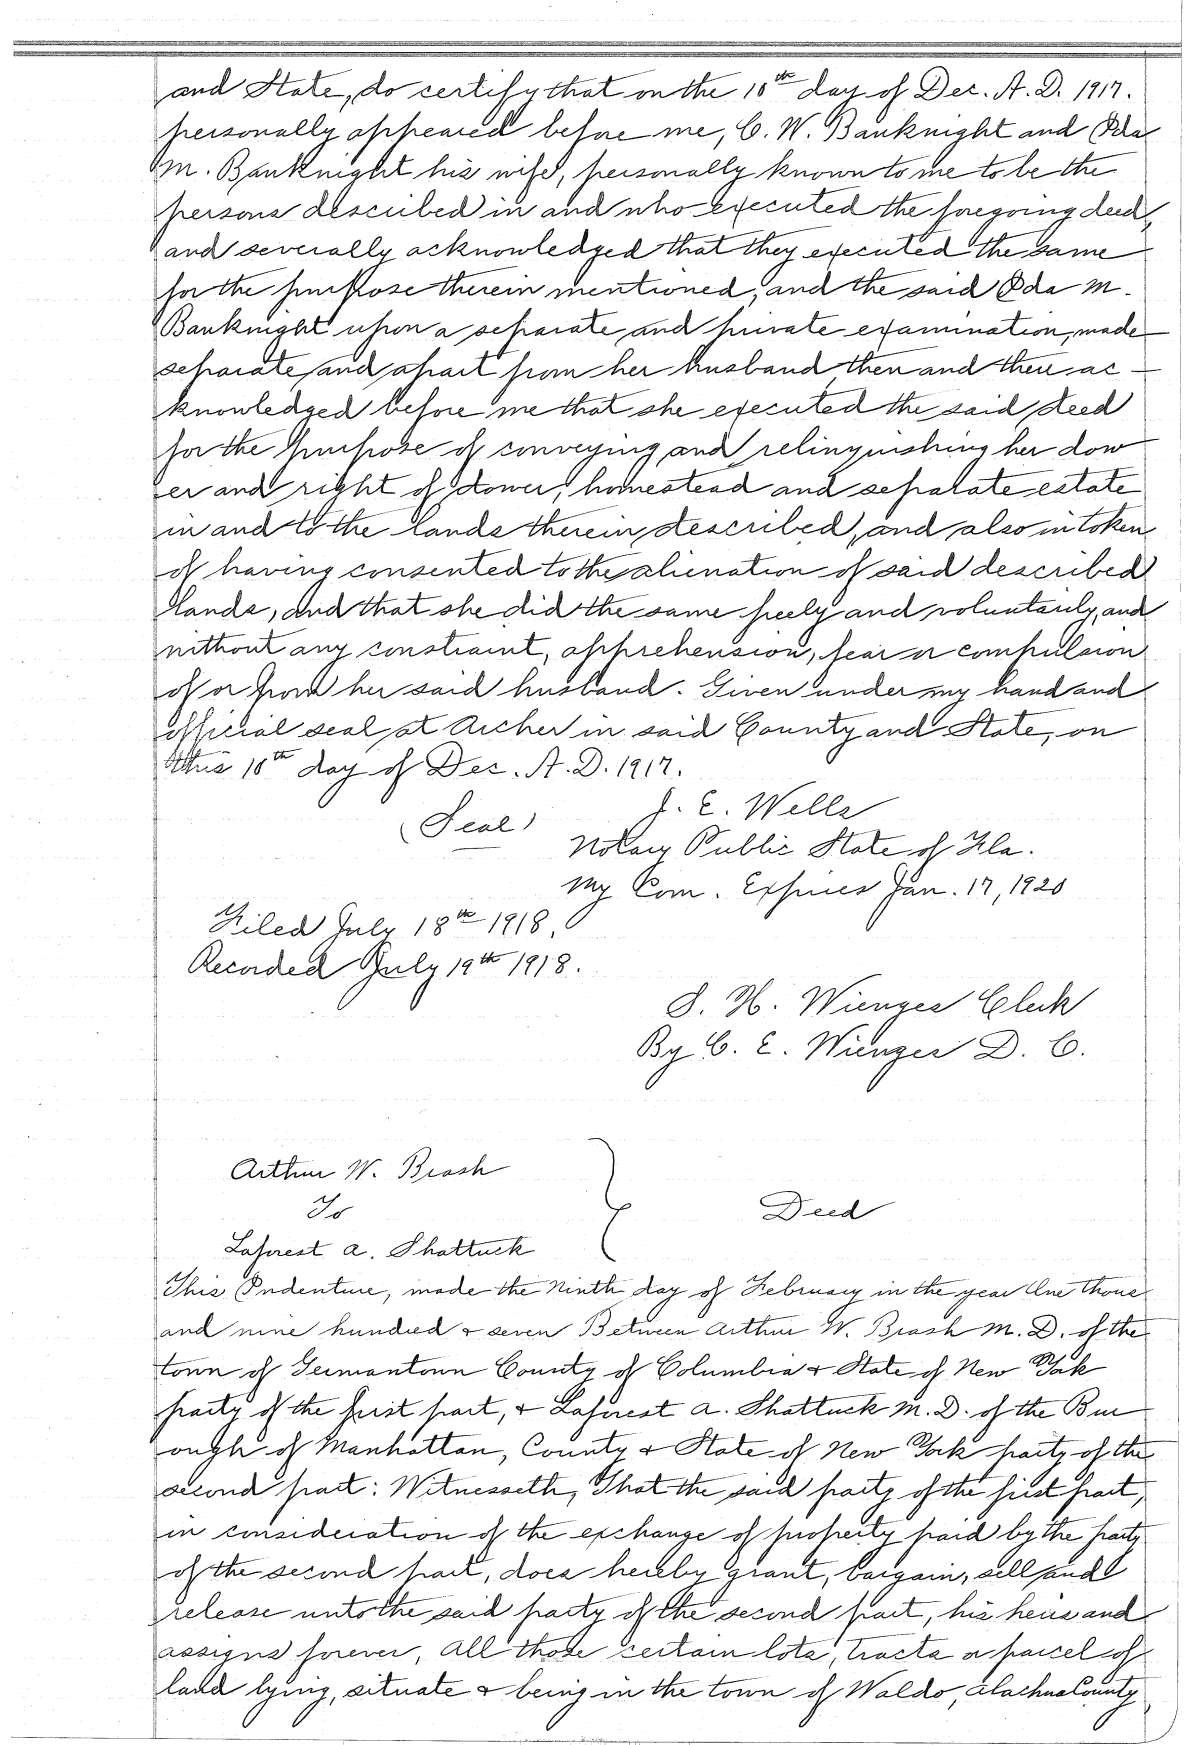 and State, do certify that on the 10th day of Dec. A. D. 1917.
personally appeared before me, C. W. Bauknight and Ida
M. Bauknight his wife, personally known to me to be the
persons described in and who executed the foregoing deed,
and severally acknowledged that they executed the same
for the purpose therein mentioned, and the said Ida M.
Bauknight upon a separate and private examination, made
separate and apart from her husband, then and there ac-
knowledged before me that she executed the said deed
for the purpose of conveying and relinquishing her dow
er and right of dower, homestead and separate estate
in and to the lands therein described, and also in token
of having consented to the alienation of said described
lands, and that she did the same freely and voluntarily, and
without any constraint, apprehension, fear or compulsion
of or from her said husband. Given under my hand and
official seal at Archer in said County and State, on
this 10th day of Dec. A. D. 1917.
(Seal) J. E. Wells
Notary Public State of Fla.
My Com. Expires Jan. 17, 1920
Filed July 18th 1918.
Recorded July 19th 1918.
S. H. Wienges Clerk
By C. E. Wienges D. C.
Arthur W. Brash
To
Deed
Laforest A. Shattuck
This Indenture, made the Ninth day of February in the year One thous
and nine hundred & seven Between Arthur W. Brash M. D. of the
town of Germantown County of Columbia & State of New York
party of the first part, & Laforest A. Shattuck M. D. of the Bur
ough of Manhattan, County & State of New York party of the
second part: Witnesseth, That the said party of the first part,
in consideration of the exchange of property paid by the party
of the second part, does hereby grant, bargain, sell and
release unto the said party of the second part, his heirs and
assigns forever, All those certain lots, tracts or parcel of
land lying, situate & being in the town of Waldo, Alachua County,